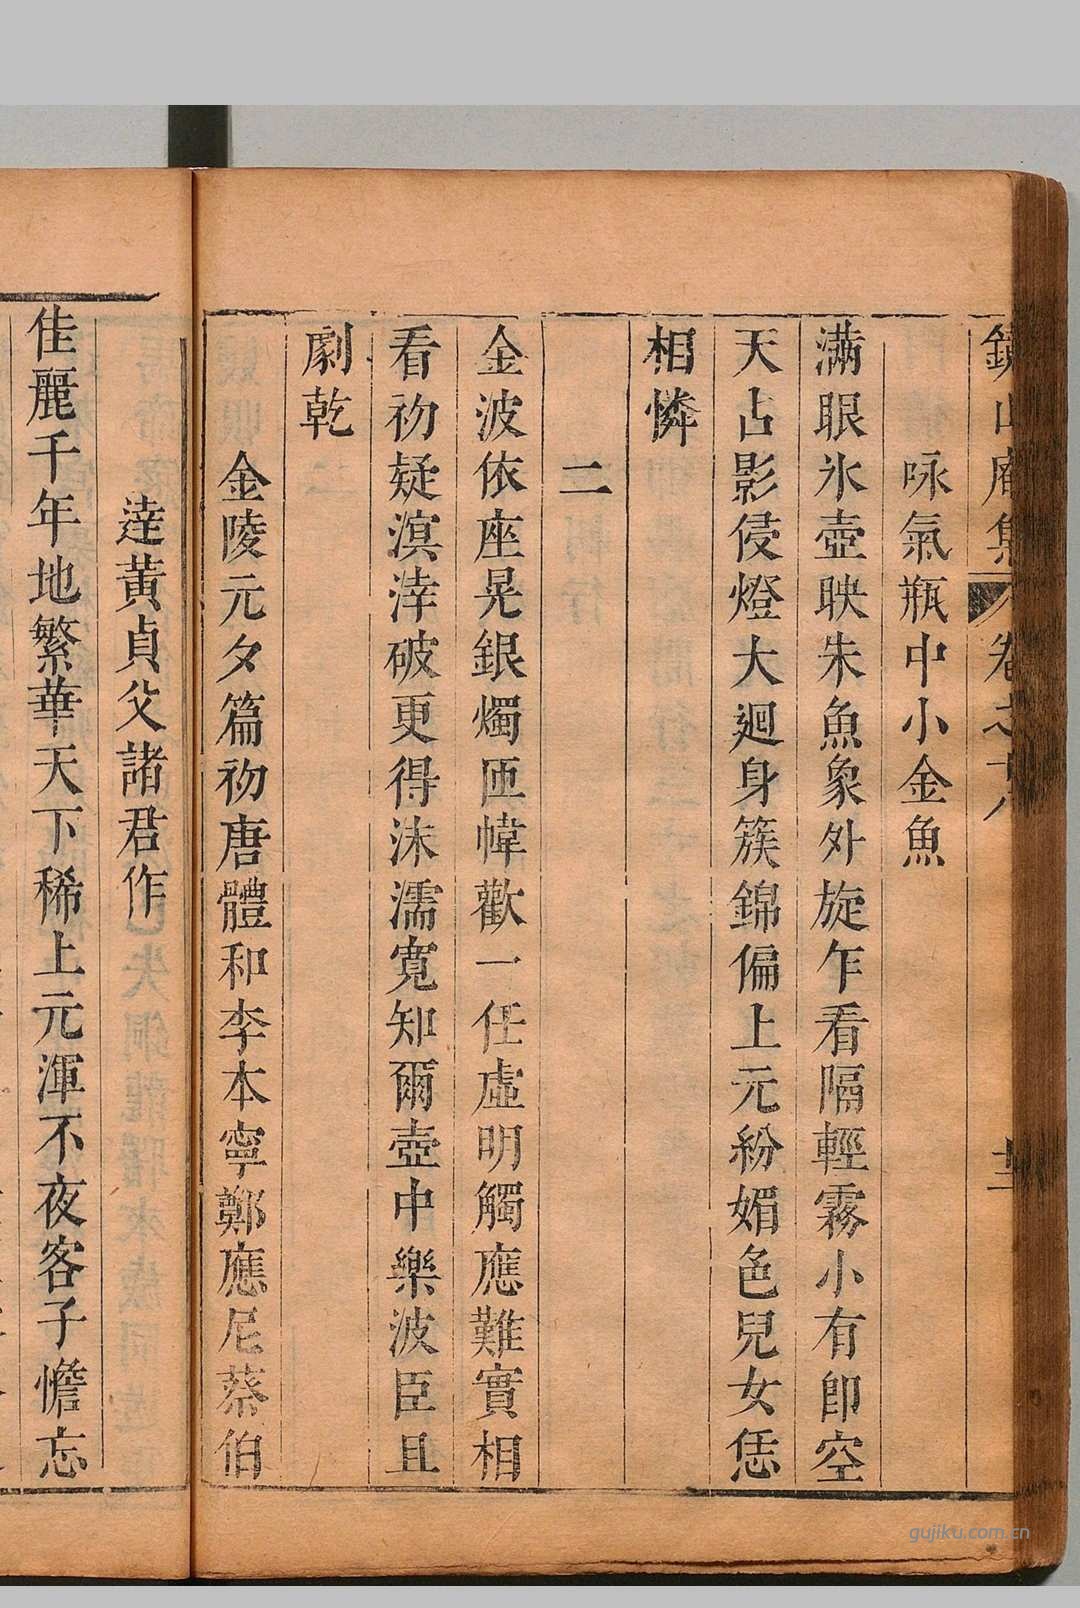 鏡山庵集 卷之十八 十二
咏氣瓶中小金魚
滿眼氷壺映朱魚象外旋乍看隔輕霧小有卽空
天占影侵燈大迴身簇錦偏上元紛媚色兒女恁
相憐
二
金波依座晃銀燭匝幃歡一任虛明觸應難實相
看初疑溟涬破更得沫濡寬知爾壺中樂波臣且
劇乾
金陵元夕篇初唐體和李本寧鄭應尼蔡伯
逹黃貞父諸君作
佳麗千年地繁華天下稀上元渾不夜客子憺忘
gujiku.com.cn